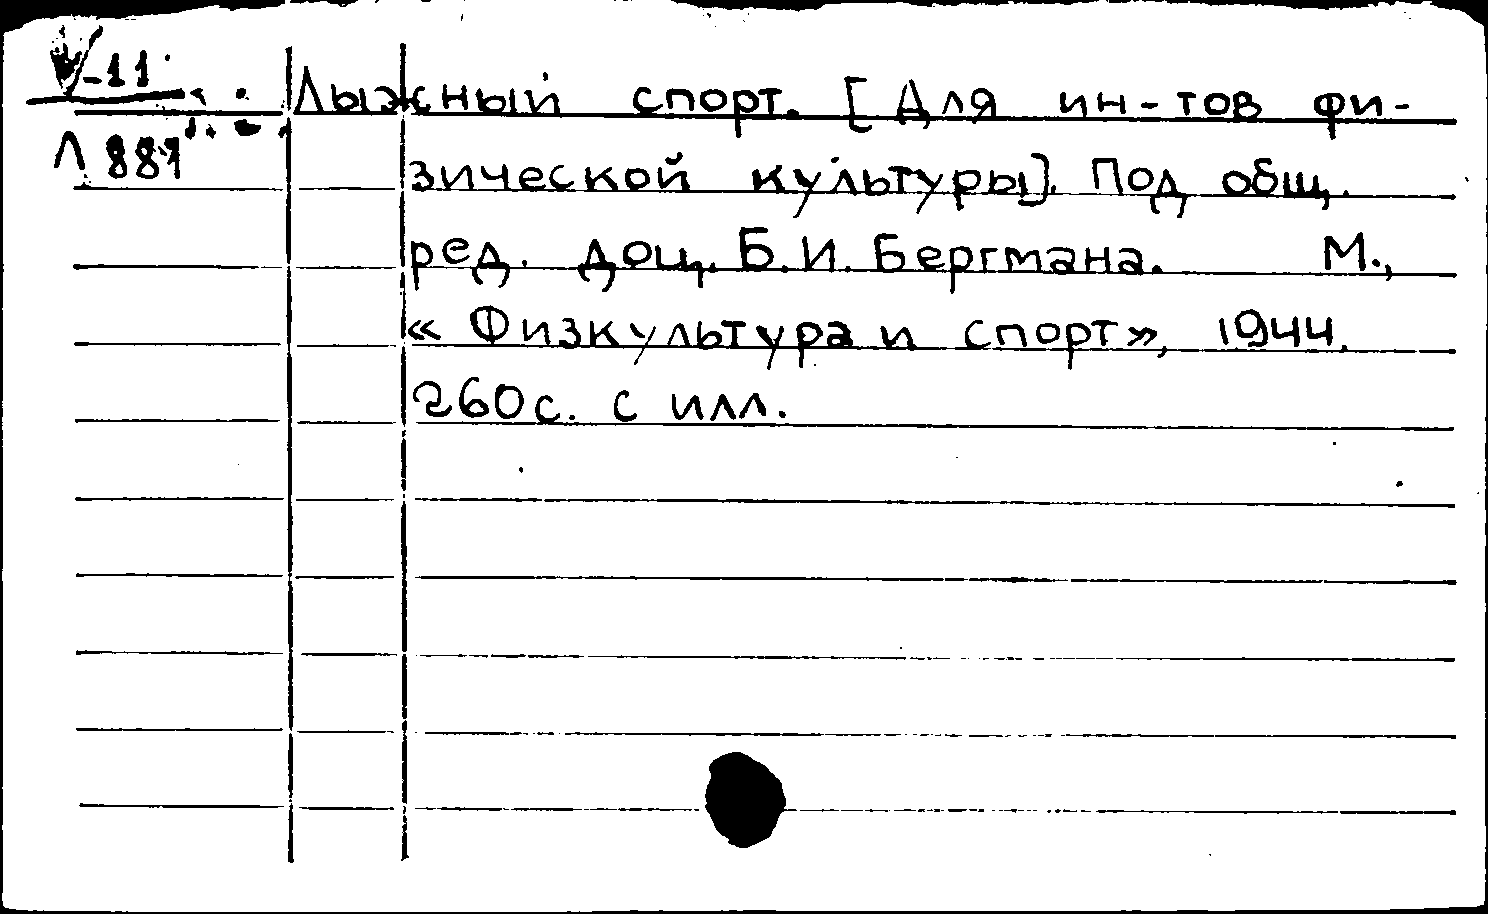 -11
Л 881
Лыжный спорт. [Для ин-тов фи-
зической культуры]. Под общ.
ред. доц. Б.И. Бергмана. М.,
«Физкультура и спорт», 1944.
260 с. с илл.